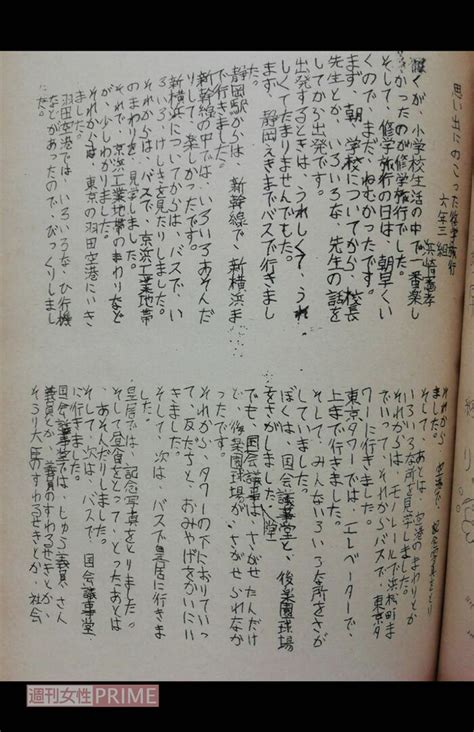 思い出にのこった修学旅行
六年三組
ぼくが、小学校生活の中で一番楽し
かったのが修学旅行でした。
そして、修学旅行の日は、朝早くい
くので、まだ、ねむかったです。
まず、朝、学校についてから、校長
先生とか、いろいろな、先生の話を
してから出発です。
出発するときは、うれしくて、うれ
しくてたまりませんでした。
まず、静岡えきまでバスで行きまし
た。
静岡駅からは、新幹線で、新横浜ま
で行きました。
新幹線の中では、いろいろあそんだ
りして、楽しかったです。
新横浜についてからは、バスで、い
ろいろ、けしきを見たりしました。
それからは、バスで、京浜工業地帯
のまわりを、見学しました。
それで、京浜工業地帯のまわりなど
が、少しわかりました。
それからは、東京の羽田空港にいき
ました。
羽田空港では、いろいろな、ひ行機
などがあったので、びっくりしまし
た。
それから、空港で、記念写真をとり
ました。
そして、あとは、空港のまわりとか
いろいろな所を見学しました。
それからは、モノレールで浜松町ま
でいって、それからバスで、東京タ
ワーに行きました。
東京タワーでは、エレベーターで、
上まで行きました。
そして、みんないろいろな所をさが
していました。
ぼくは、国会議事堂と、後楽園球場
をさがしました。
でも、国会議事堂は、さがせたんだけ
ど、後楽園球場が、さがせられなか
ったです。
それから、タワーの下におりていっ
て、友だちと、おみやげをかいにい
きました。
そして、次は、バスで皇居に行きま
した。
皇居では、記念写真をとりました。
そして昼食をとって、とったあとは
、あそんだりしました。
そして、次は、バスで、国会議事堂
に行きました。
国会議事堂では、しゅう議員、さん
議員とか、議員のすわるせきとか、
そうり大臣のすわるせきとか、社会
週刊女性PRIME